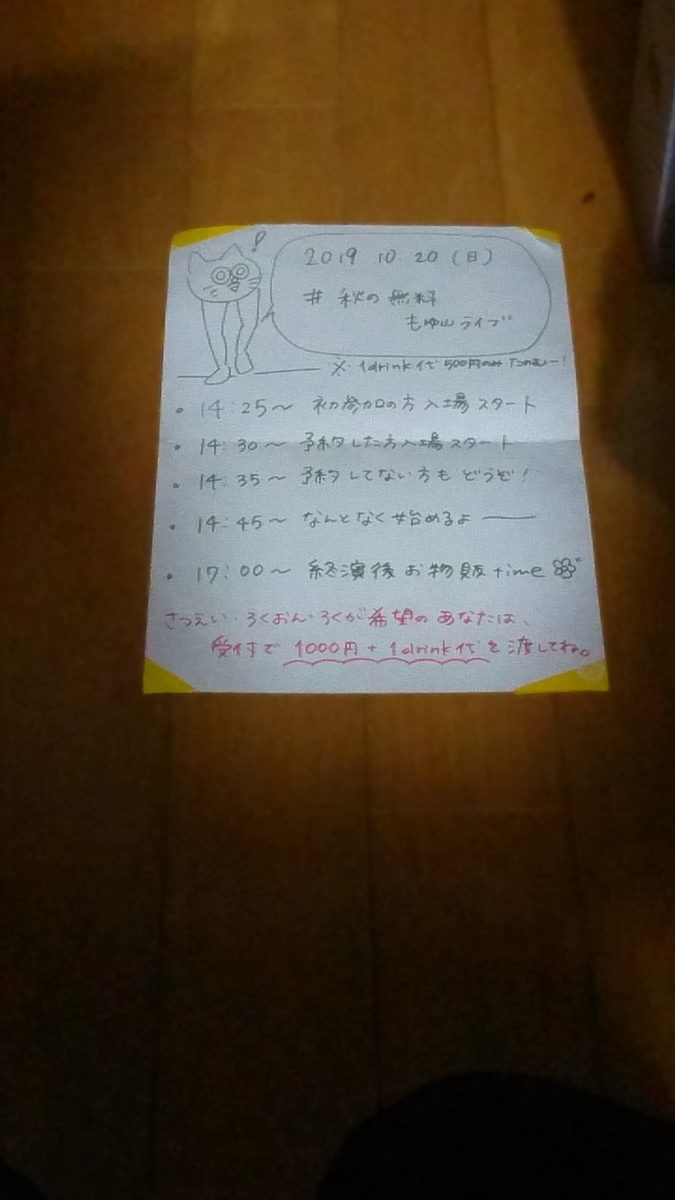 !
2019 10.20(日)
# 秋の無料
もゆ山ライブ
※1drink代500円のみ たのむー!
・14:25〜 初参加の方入場スタート
・14:30〜 予約した方入場スタート
・14:35〜 予約してない方もどうぞ!
・14:45〜 なんとなく始めるよ ――
・17:00〜 終演後お物販time
さつえい・ろくおん・ろくが希望のあなたは、
受付で1000円+1drink代を渡してね。